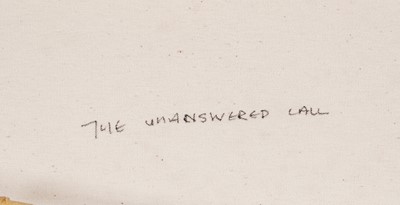 THE UNANSWERED CALL